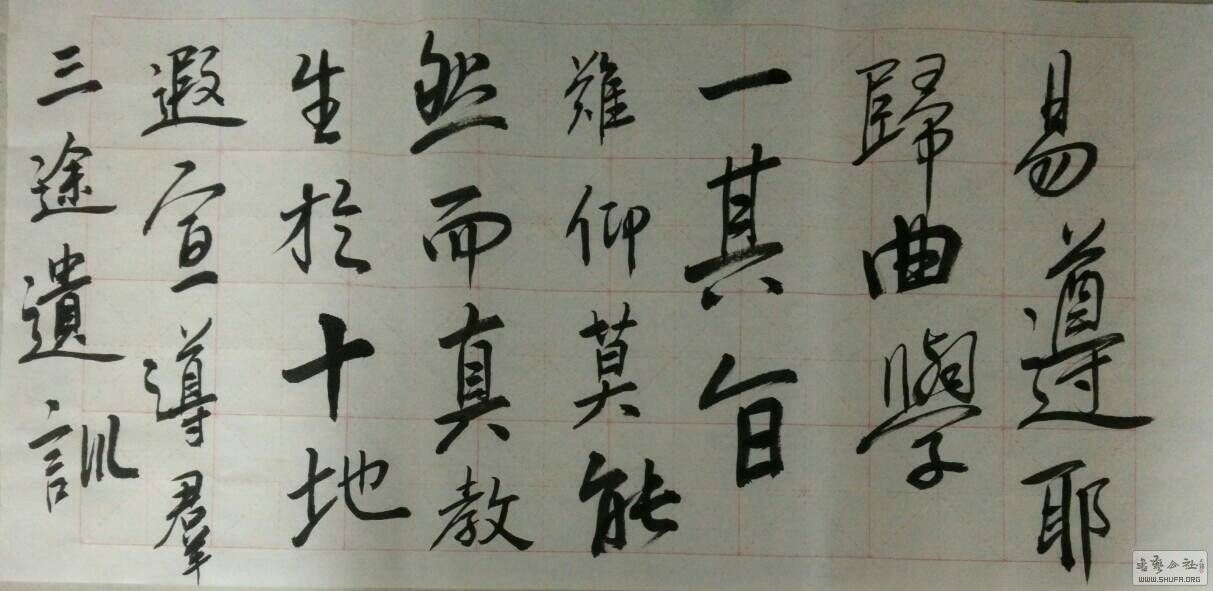 三途遺訓
遐宣導羣
生於十地
然而真教
難仰莫能
一其旨
歸曲學
易遵耶
书艺公社
WWW.SHUFA.ORG